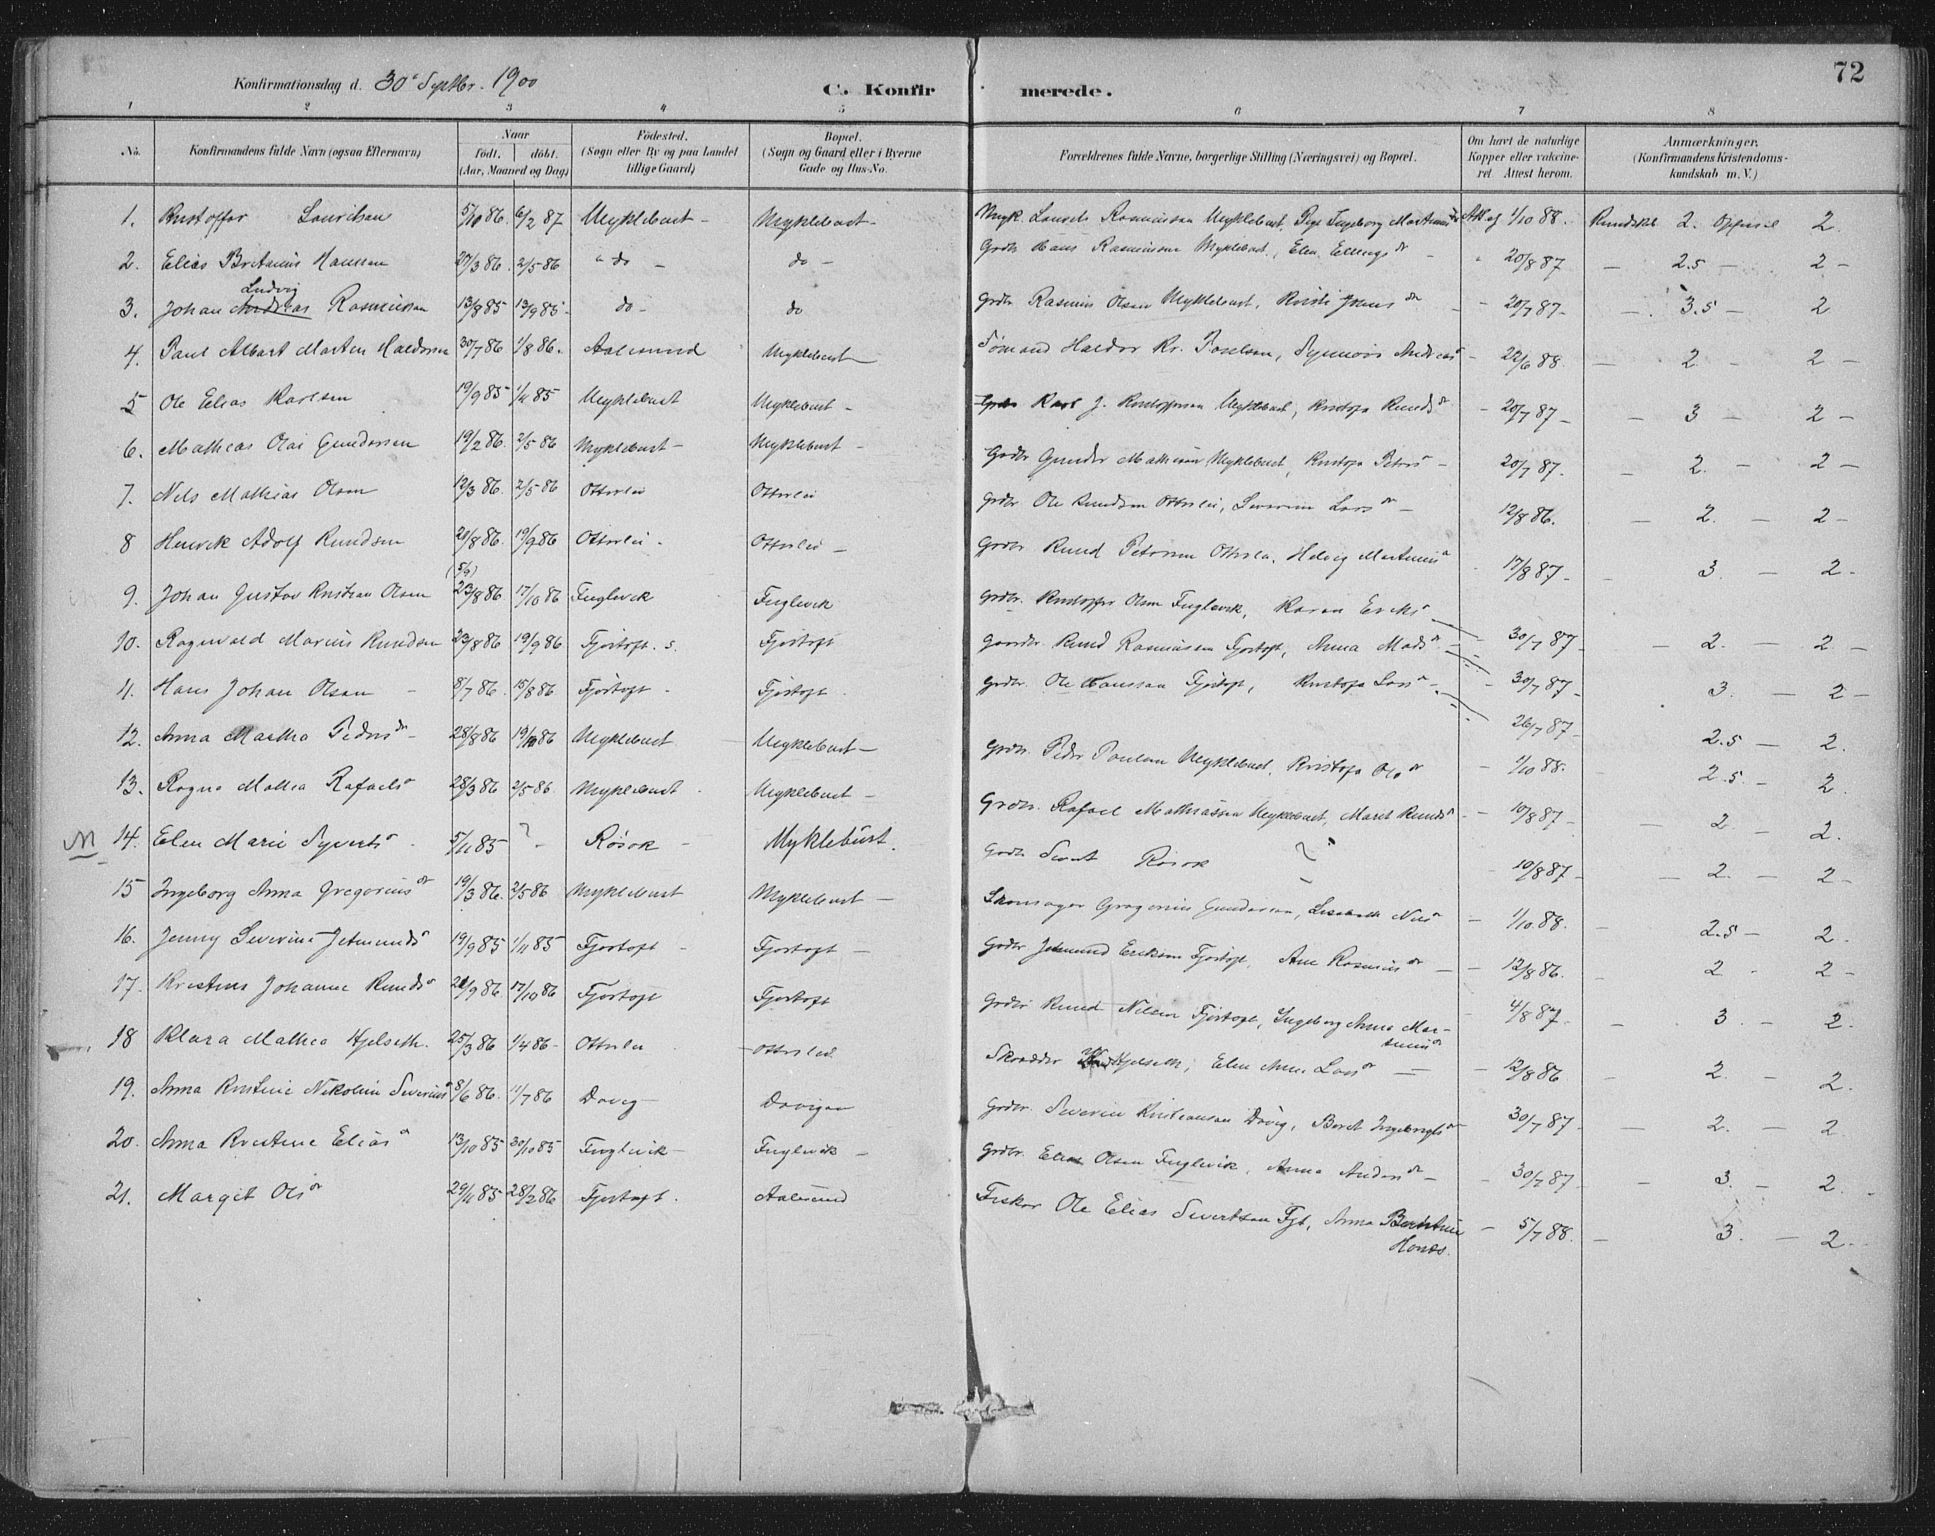 72
Konfirmationsdag d. 30te Septbr. 1900
C. Konfirmerede.
1 2 3 4 5 6 7 8
No. Konfirmandens fulde Navn (ogsaa Efternavn) Naar födt. döbt. (Aar, Maaned og Dag) Födested. (Sogn eller By og paa Landet tillige Gaard) Bopæl. (Sogn og Gaard eller i Byerne Gade og Hus-No. Forældrenes fulde Navne, borgerlige Stilling (Næringsvei) og Bopæl. Om havt de naturlige Kopper eller vakcineret. Attest herom. Anmærkninger. (Konfirmandens Kristendomskundskab m. V.)
1. Kristoffer Lauritsen 5/10 86 6/2 87 Myklebust Myklebust Rasmussen Myklebust, Pige Ingeborg Att. af 1/10 88. Kundskb. 2. Opførsel 2.
2. Elias Britanus Hansen 27/3 86. 2/5 86 do do Grdbr. Hans Rasmussen Myklebust, Elen Ellings dr 20/8 87 2.5 2
Ludvig
3. Johan Andreas Rasmussen 13/8 85 13/9 85 do do Grdbr. Rasmus Olsen Myklebust, 20/7 87 3.5 2
4. Paul Albert Martin Haldorsen 30/7 86 1/8 86. Aalesund Myklebust Sømand Haldor Kr. Synnøve Andreas dr 22/6 88. 2 2
5 Ole Elias Karlsen 19/9 85 1/11 85 Myklebust Myklebust Karl J. Kristoffersen Myklebust, Kristofa Knuds dr 20/7 87 3 2
6. Mathias Olai Gundersen 19/2 86. 2/5 86 Myklebust Myklebust Grdbr. Gunder Mathisen Myklebust, Kristofa Peters 20/7 87. 2. 2
7. Nils Mathias Olsen 12/3 86. 2/5 86 Otterlei Otterlei Grdbr. Ole Knudsen Otterlei, Severine Lars dr 12/8 86. 2. 2
8 Henrik Adolf Knudsen 20/8 86. 19/9 86 Otterlei Otterlei Grdbr. Knud Petersen Otterlei, Helvig Martinus dr 17/8 87 3. 2.
(5/9)
9. Johan Gustav Kristian Olsen 23/8 86 17/10 86 Fuglevik Fuglevik Grdbr. Kristoffer Olsen Fuglevik, Karen Eriks dr 30/7 87 2. 2.
10. Ragnvald Marius Knudsen 23/8 86 19/9 86 Fjørtoft. s. Fjørtoft Gaardbr. Knud Rasmussen Fjørtoft, Anna Mads dr 30/7 87 3. 2
11. Hans Johan Olsen 8/7 86. 15/8 86 Fjørtoft Fjørtoft Grdbr. Ole Hanssen Fjørtoft, Kristofa Lars dr 26/7 87 2.5 2.
12. Anna Martha Peders dr 28/8 86 19/10 86 Myklebust Myklebust Grdbr. Peder Paulsen Myklebust, Kristofa Ols dr 1/10 88. 2.5 2.
13. Ragna Mathea Rafaels dr 28/3 86 2/5 86 Myklebust Myklebust Grdbr. Rafael Mathiassen Myklebust, Maret Knuds dr 10/8 87 2. 2.
N 14. Elen Marie Syverts dr 5/11 85 ? Røsok Myklebust. Grdbr. Sivert Røsok ? 10/8 87 2. 2
15 Ingeborg Anna Gregorius dr 19/3 86. 2/5 86 Myklebust Myklebust Skomager Gregorius Gundersen, Lisabeth Nils dr 1/10 88. 2.5 2.
16. Jenny Severine Jetmunds dr 19/9 85 1/11 85 Fjørtoft Fjørtoft Grdbr. Jetmund Eriksen Fjørtoft, Ane Rasmus dr 12/8 86. 2 2
17. Kristine Johanne Knuds dr 21/9 86 17/10 86 Fjørtoft Fjørtoft Grdbr. Knud Nilsen Fjørtoft, Ingeborg Anna Mar-
tinus dr 4/8 87. 3. 2.
18 Klara Mathea Hjelseth. 25/3 86 1/4 86 Otterlei Otterlei Skrædder Hjelseth, Elen Ane Lars dr 12/8 86 2. 2.
19. Anna Kristine Nikoline Severins dr 8/6 86. 11/7 86 Davig Davigen Grdbr. Severin Kristiansen Davig, Beret Ingebrigts dr 30/7 87 2. 2.
20. Anna Kristine Elias dr 13/10 85 30/10 85 Fuglevik Fuglevik Grdbr. Elias Olsen Fuglevik, Anna Anders dr 30/7 87 3. 2.
21. Margit Ols dr 29/11 85 28/2 86 Fjørtoft. Aalesund Fisker Ole Elias Sivertsen Fjt, Anna
Hans. 5/7 88. 3. 2.